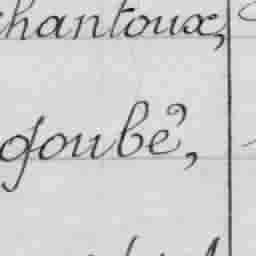 chantoux,
goubé,